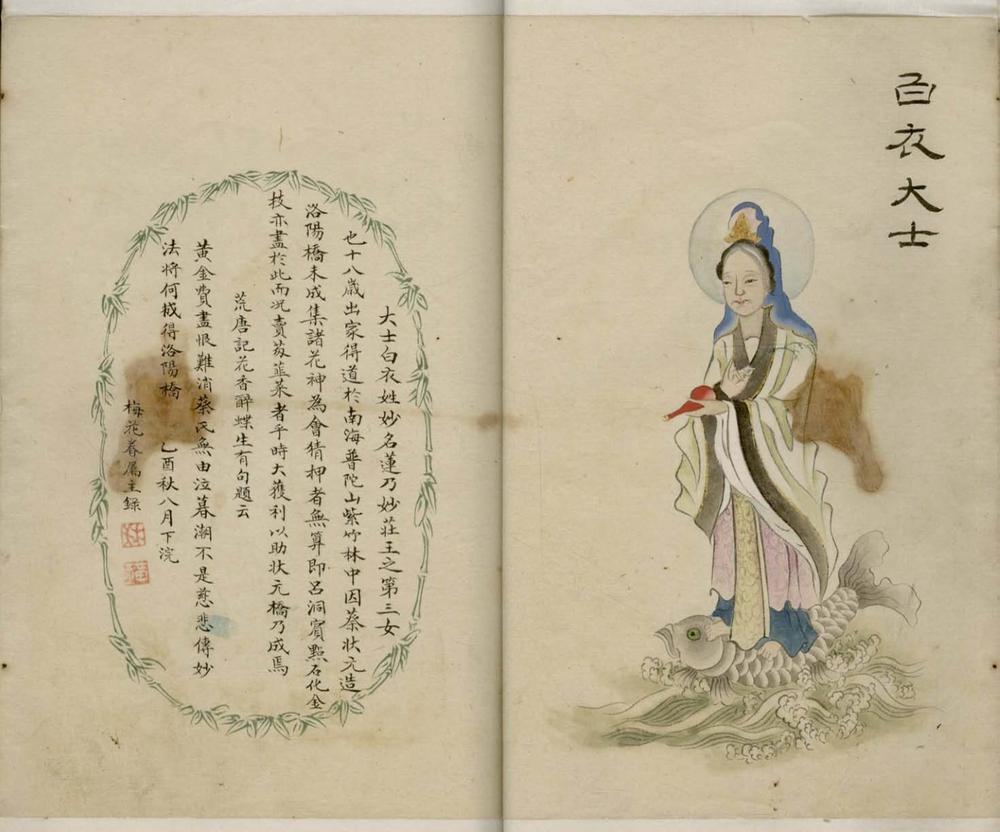 白衣大士
大士白衣姓妙名蓮乃妙莊王之第三女
也十八歲出家得道於南海普陀山紫竹林中因蔡狀元造
洛陽橋未成集諸花神為會猜押者無算即呂洞賓點石化金
技亦盡於此而况賣芻韮菜者乎時大獲利以助狀元橋乃成焉
荒唐記花香醉蝶生有句題云
黃金費盡恨難消蔡氏無由泣暮潮不是慈悲傳妙
法將何成得洛陽橋 乙酉秋八月下浣
梅花眷屬主錄